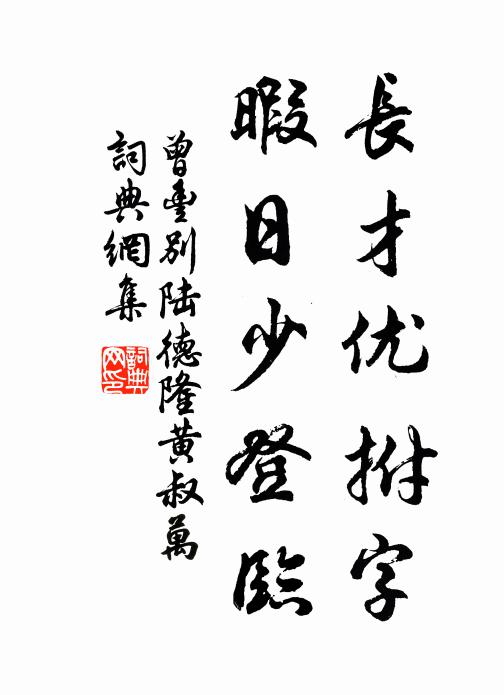 長才优拊字
暇日少登臨
曾豊別陆德隆黄叔萬
詞典網集
詞典網印